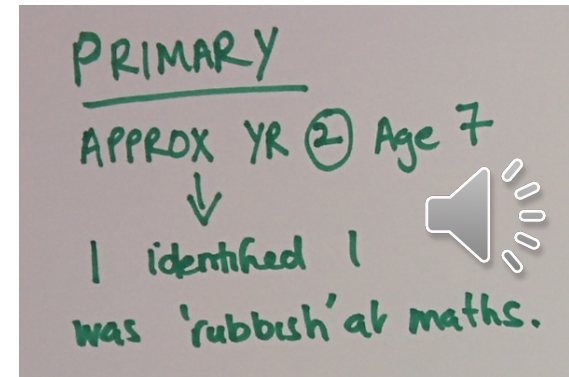 PRIMARY
APPROX YR 2 Age 7
I identified I
was 'rubbish' at maths.